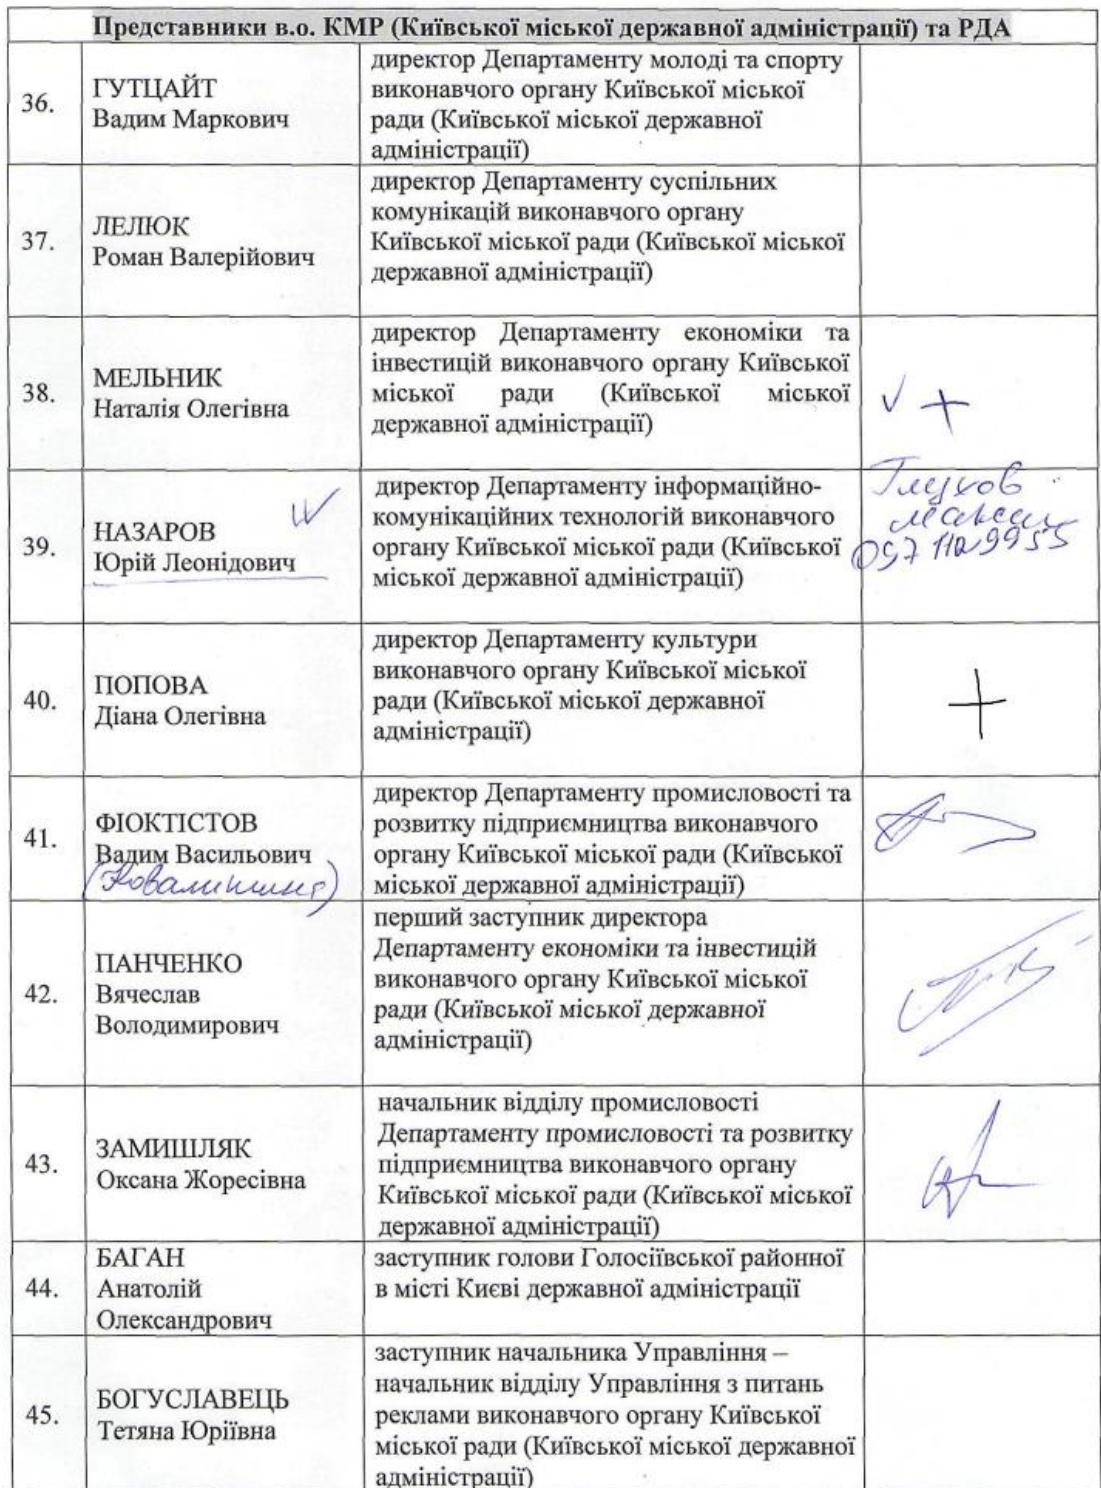 Представники в.о. КМР (Київської міської державної адміністрації) та РДА
36.
ГУТЦАЙТ
Вадим Маркович
директор Департаменту молоді та спорту
виконавчого органу Київської міської
ради (Київської міської державної
адміністрації)
37.
ЛЕЛЮК
Роман Валерійович
директор Департаменту суспільних
комунікацій виконавчого органу
Київської міської ради (Київської міської
державної адміністрації)
38.
МЕЛЬНИК
Наталія Олегівна
директор Департаменту економіки та
інвестицій виконавчого органу Київської
міської ради (Київської міської
державної адміністрації)
✓ +
39.
НАЗАРОВ
Юрій Леонідович
директор Департаменту інформаційно-
комунікаційних технологій виконавчого
органу Київської міської ради (Київської
міської державної адміністрації)
Глухов
Максим
40.
ПОПОВА
Діана Олегівна
директор Департаменту культури
виконавчого органу Київської міської
ради (Київської міської державної
адміністрації)
+
41.
ФІОКТІСТОВ
Вадим Васильович
директор Департаменту промисловості та
розвитку підприємництва виконавчого
органу Київської міської ради (Київської
міської державної адміністрації)
42.
ПАНЧЕНКО
Вячеслав
Володимирович
перший заступник директора
Департаменту економіки та інвестицій
виконавчого органу Київської міської
ради (Київської міської державної
адміністрації)
43.
ЗАМИШЛЯК
Оксана Жоресівна
начальник відділу промисловості
Департаменту промисловості та розвитку
підприємництва виконавчого органу
Київської міської ради (Київської міської
державної адміністрації)
44.
БАГАН
Анатолій
Олександрович
заступник голови Голосіївської районної
в місті Києві державної адміністрації
45.
БОГУСЛАВЕЦЬ
Тетяна Юріївна
заступник начальника Управління –
начальник відділу Управління з питань
реклами виконавчого органу Київської
міської ради (Київської міської державної
адміністрації)